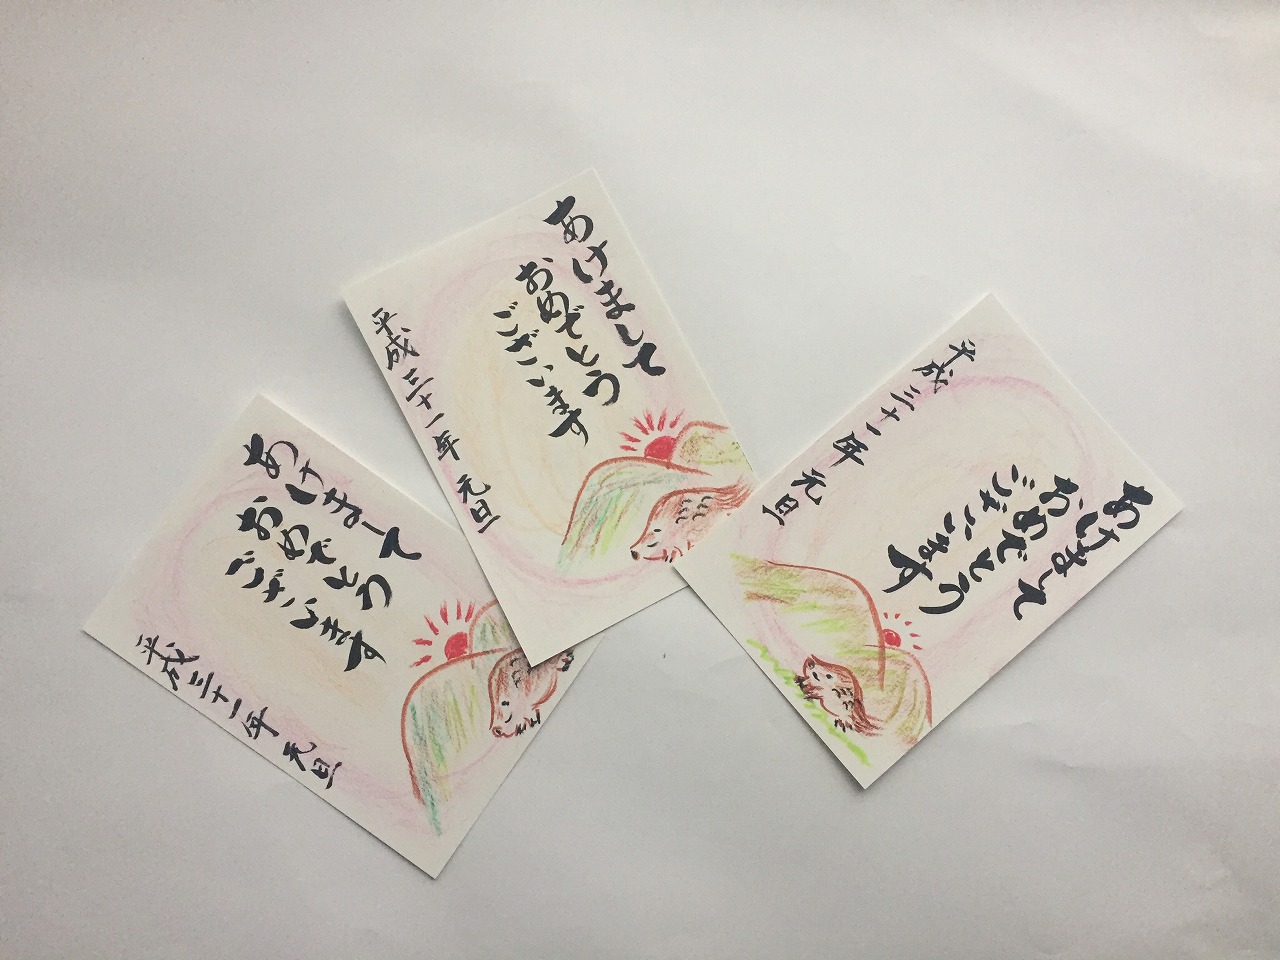 あけまして
おめでとう
ございます
平成三十一年 元旦
あけまして
おめでとう
ございます
平成三十一年 元旦
あけまして
おめでとう
ございます
平成三十一年 元旦